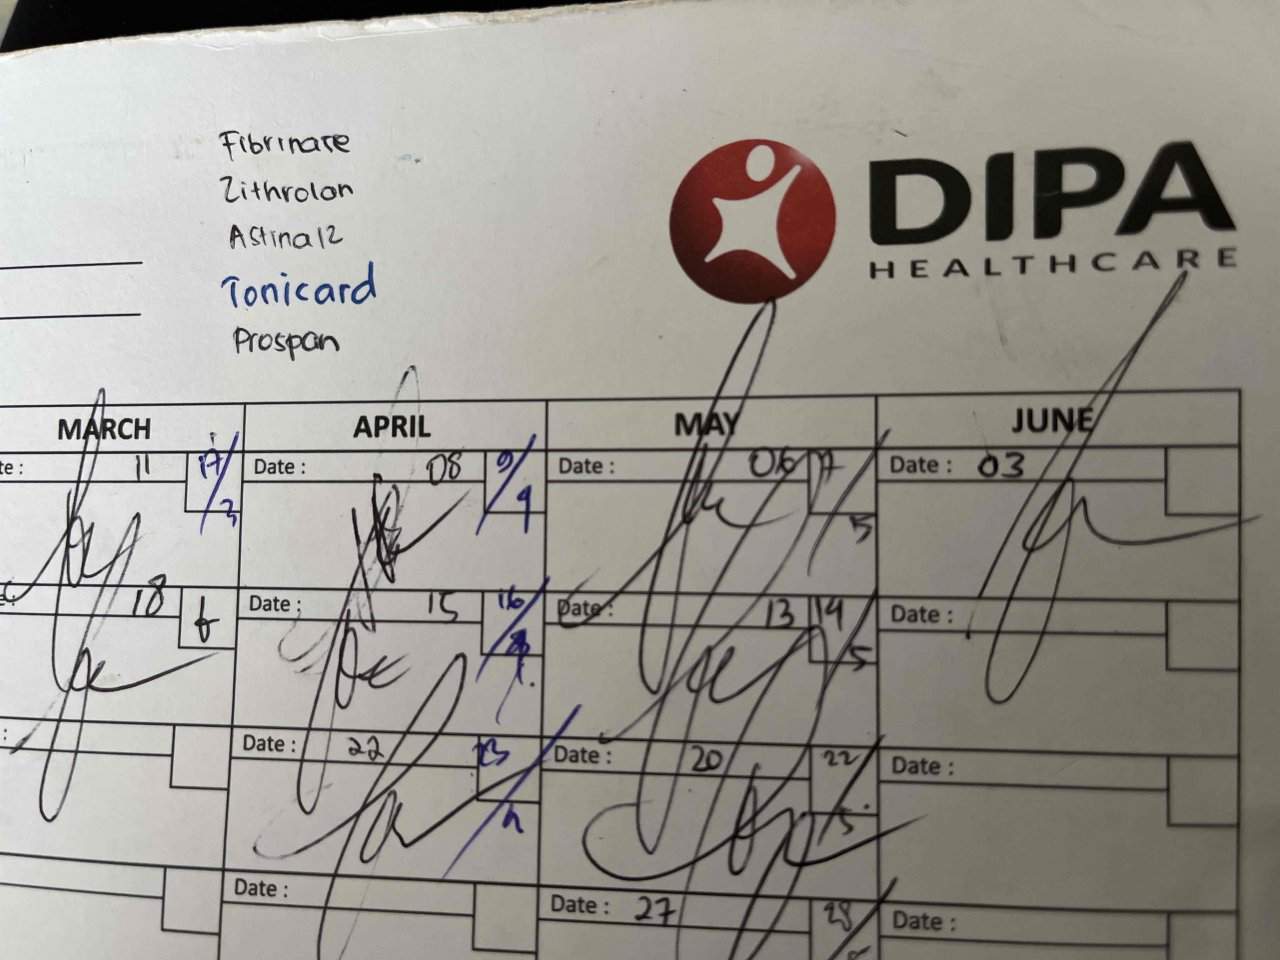 Fibrinate
Zithrolan
Astina 12
Tonicard
Prospan
DIPA
HEALTHCARE
MARCH APRIL MAY JUNE
te : 11 17/3 Date : 08 9/4 Date : 06 7/5 Date : 03
18 Date : 15 16/4 Date : 13 14/5 Date :
: Date : 22 23/4 Date : 20 22/5 Date :
Date : Date : 27 28/ Date :